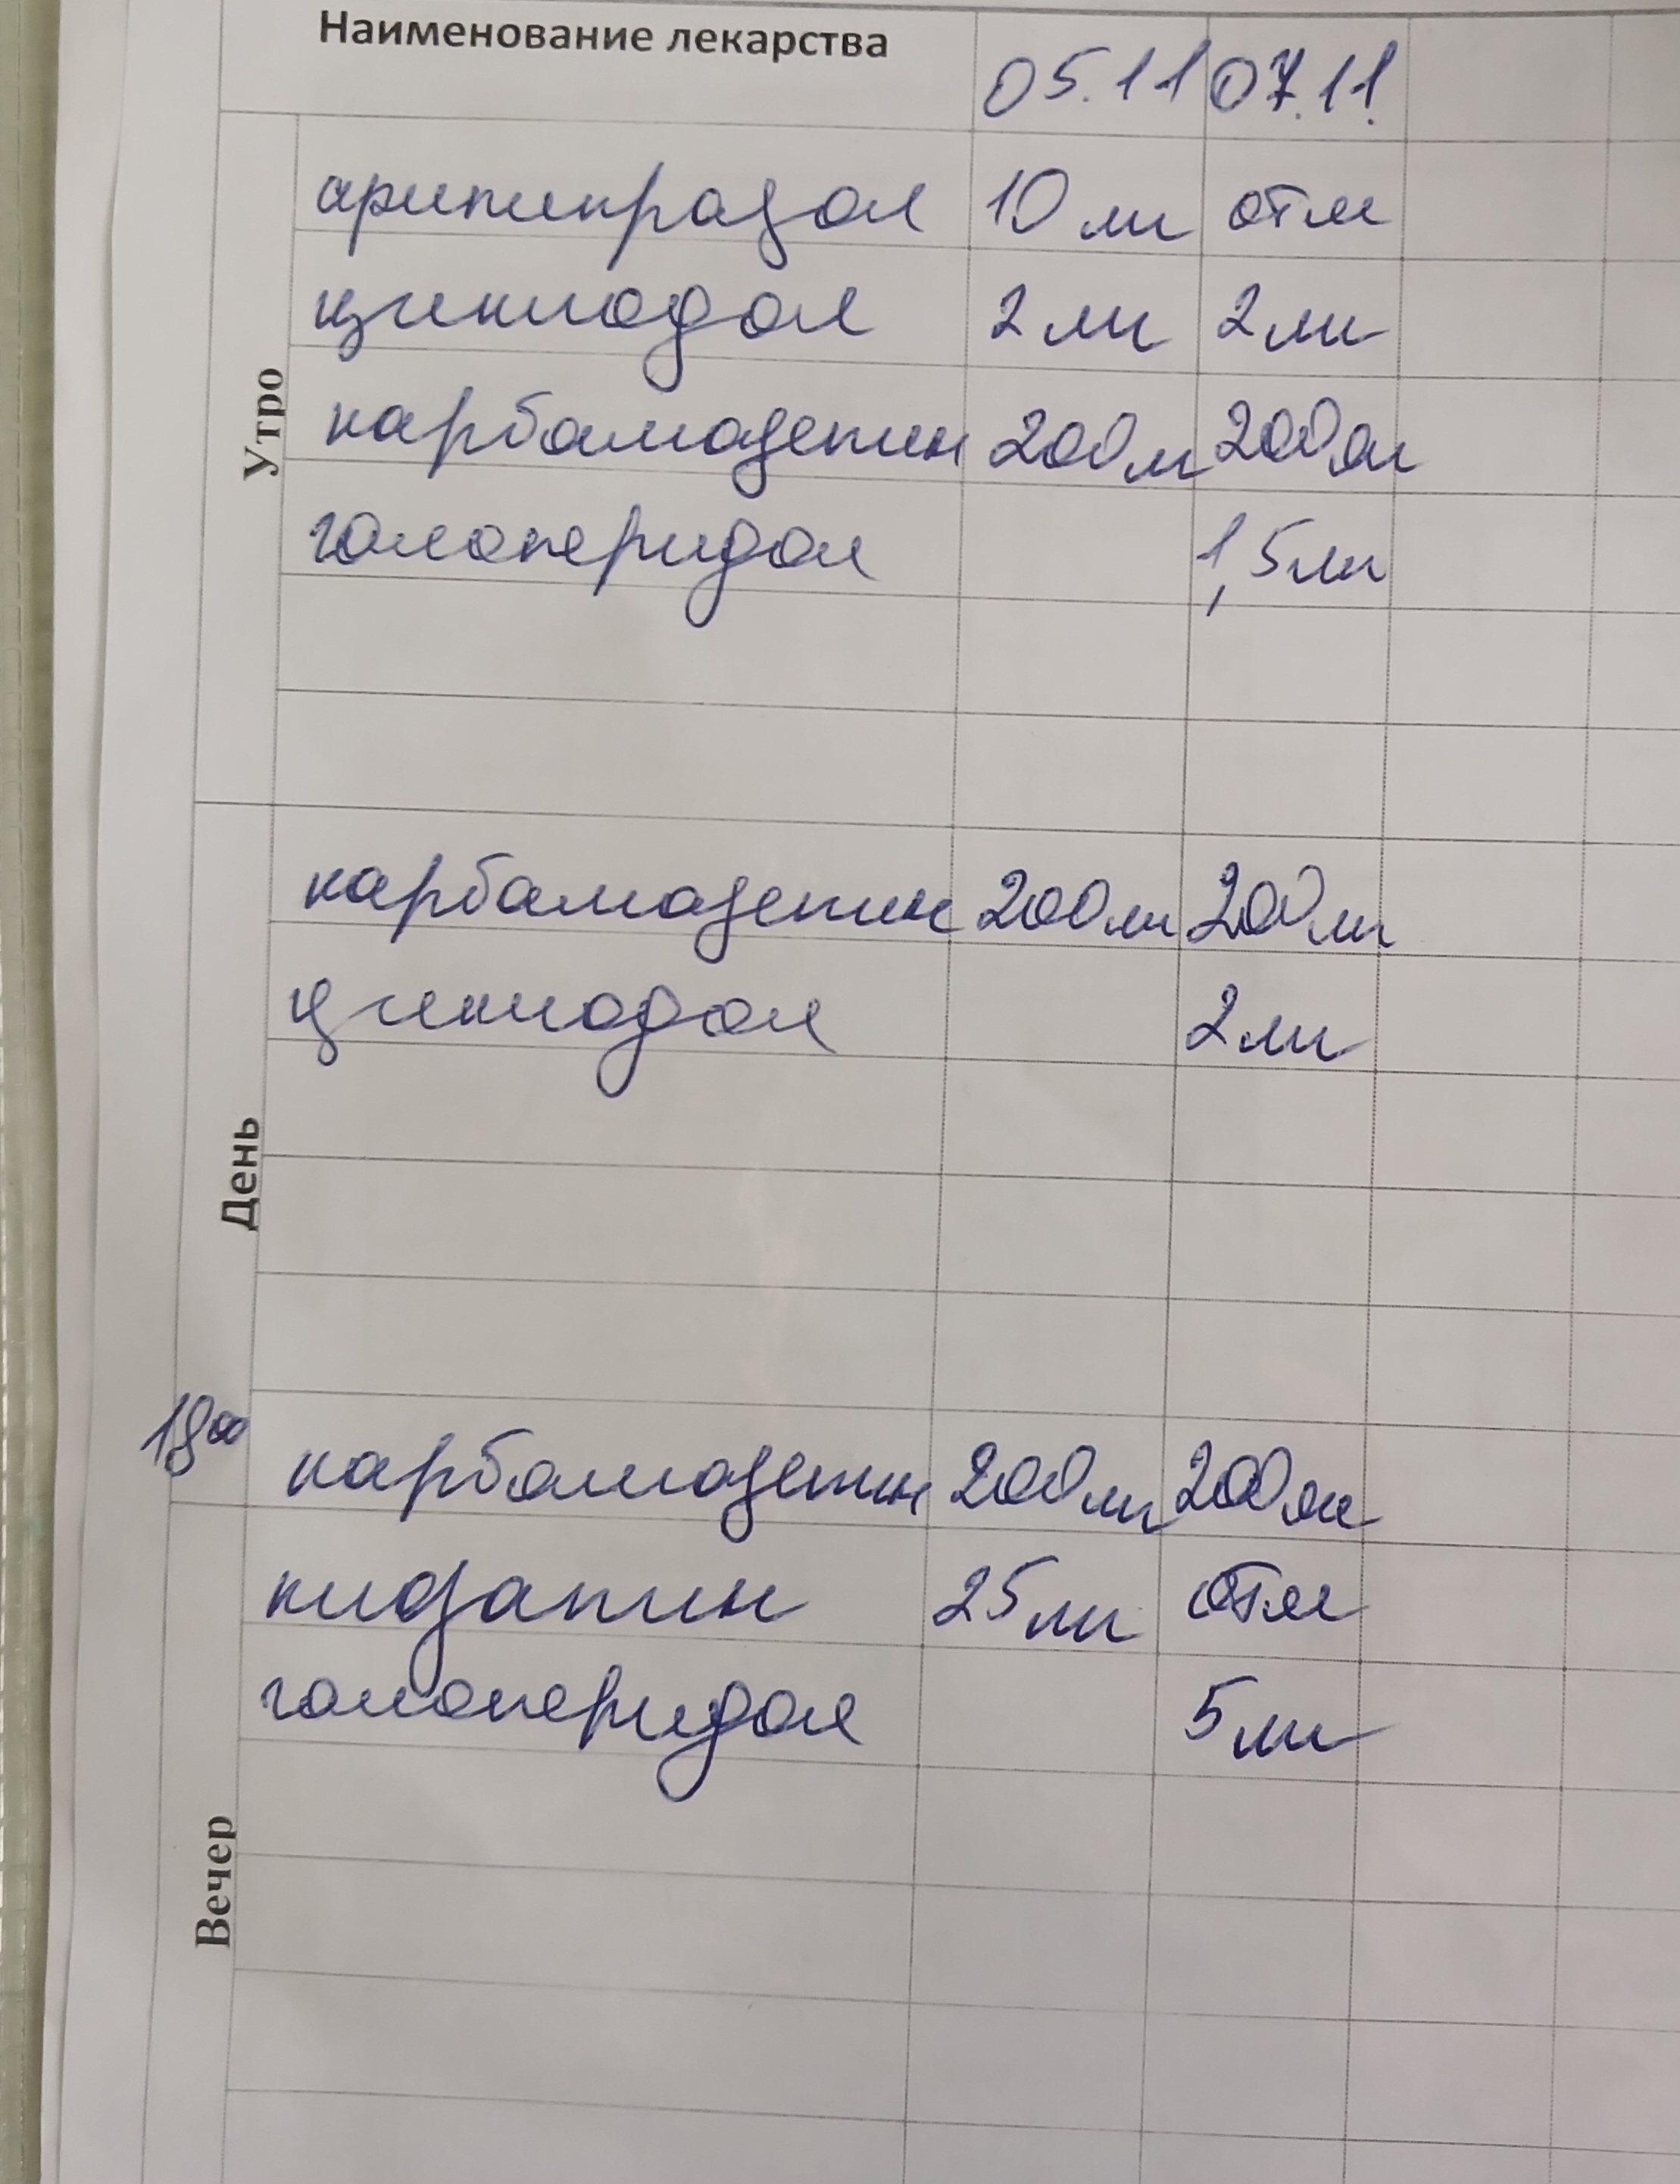 Наименование лекарства 05.11 07.11.
Утро
арипипразол 10 мг отм
циклодол 2 мг 2 мг
карбамазепин 200мг 200мг
галоперидол 1,5мг
День
карбамазепин 200мг 200мг
циклодол 2мг
18⁰⁰ карбамазепин 200мг 200мг
Вечер
кидапин 25мг отм
галоперидол 5мг